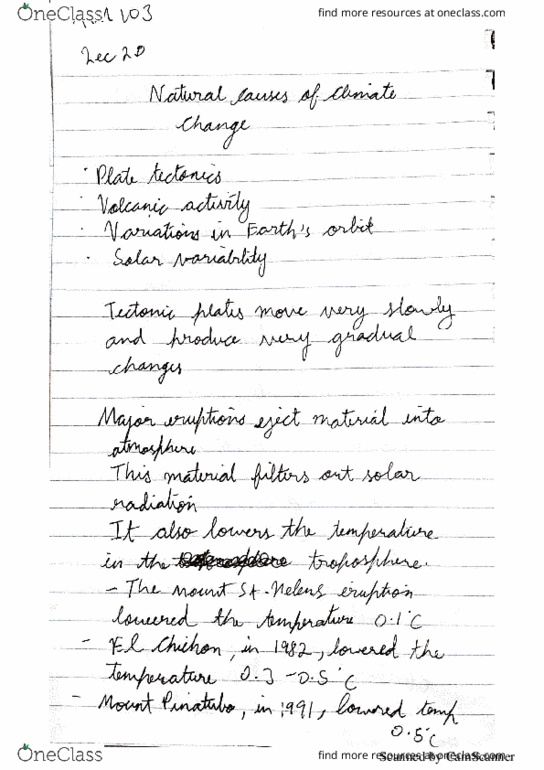 OneClass
find more resources at oneclass.com
103
Lec 20
Natural Causes of Climate
Change
· Plate tectonics
· Volcanic activity
· Variations in Earth's orbit
· Solar variability
Tectonic plates move very slowly
and produce very gradual
changes
Major eruptions eject material into
atmosphere
This material filters out solar
radiation
It also lowers the temperature
in the troposphere.
- The Mount St. Helens eruption
lowered the temperature 0.1°C
- El Chichon, in 1982, lowered the
temperature 0.3 - 0.5°C
- Mount Pinatubo, in 1991, lowered temp
0.5°C
OneClass
find more resources at oneclass.com
Scanned by CamScanner